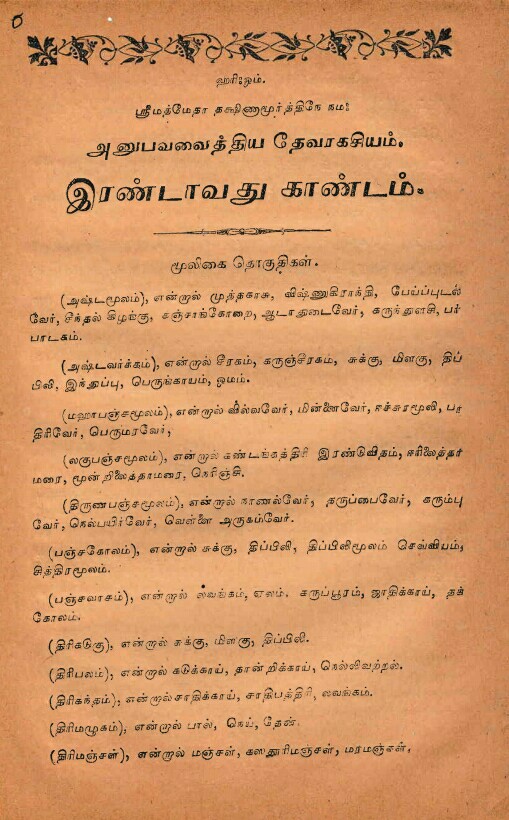 ஹரி:ஓம்.
ஸ்ரீமத்மேதா தக்ஷிணாமூர்த்தினே நம:
அனுபவவைத்திய தேவரகசியம்.
இரண்டாவது காண்டம்.
மூலிகை தொகுதிகள்.
(அஷ்டமூலம்), என்றால் முத்தகாசு, விஷ்ணுகிராக்தி, பேய்ப்புடல்
வேர், சீந்தல் கிழங்கு, கஞ்சாங்கோறை, ஆடாதுடைவேர், கருந்துளசி, பர்
பாடகம்.
(அஷ்டவர்க்கம்), என்றால் சீரகம், கருஞ்சீரகம், சுக்கு, மிளகு, திப்
பிலி, இந்துப்பு, பெருங்காயம், ஓமம்.
(மஹாபஞ்சமூலம்), என்றால் வில்வவேர், மின்னைவேர், ஈச்சுரமூலி, பா
திரிவேர், பெருமரவேர்,
(லகுபஞ்சமூலம்), என்றால் கண்டங்கத்திரி இரண்டுவிதம், ஈரிலைத்தா
மரை, மூன்றிலைத்தாமரை, நெரிஞ்சி.
(திருணபஞ்சமூலம்), என்றால் நாணல்வேர், தருப்பைவேர், கரும்பு
வேர், நெல்பயிர்வேர், வெள்ளை அருகம்வேர்.
(பஞ்சகோலம்), என்றால் சுக்கு, திப்பிலி, திப்பிலிமூலம் செவ்வியம்,
சித்திரமூலம்.
(பஞ்சவாசம்), என்றால் லவங்கம், ஏலம். கருப்பூரம், ஜாதிக்காய், தக்
கோலம்.
(திரிகடுகு), என்றால் சுக்கு, மிளகு, திப்பிலி.
(திரிபலம்), என்றால் கடுக்காய், தான்றிக்காய், நெல்லிவற்றல்.
(திரிகந்தம்), என்றால்சாதிக்காய், சாதிபத்திரி, லவங்கம்.
(திரிமழுகம்), என்றால் பால், நெய், தேன்.
(திரிமஞ்சள்), என்றால் மஞ்சள், கஸதூரிமஞ்சள், மரமஞ்சள்,